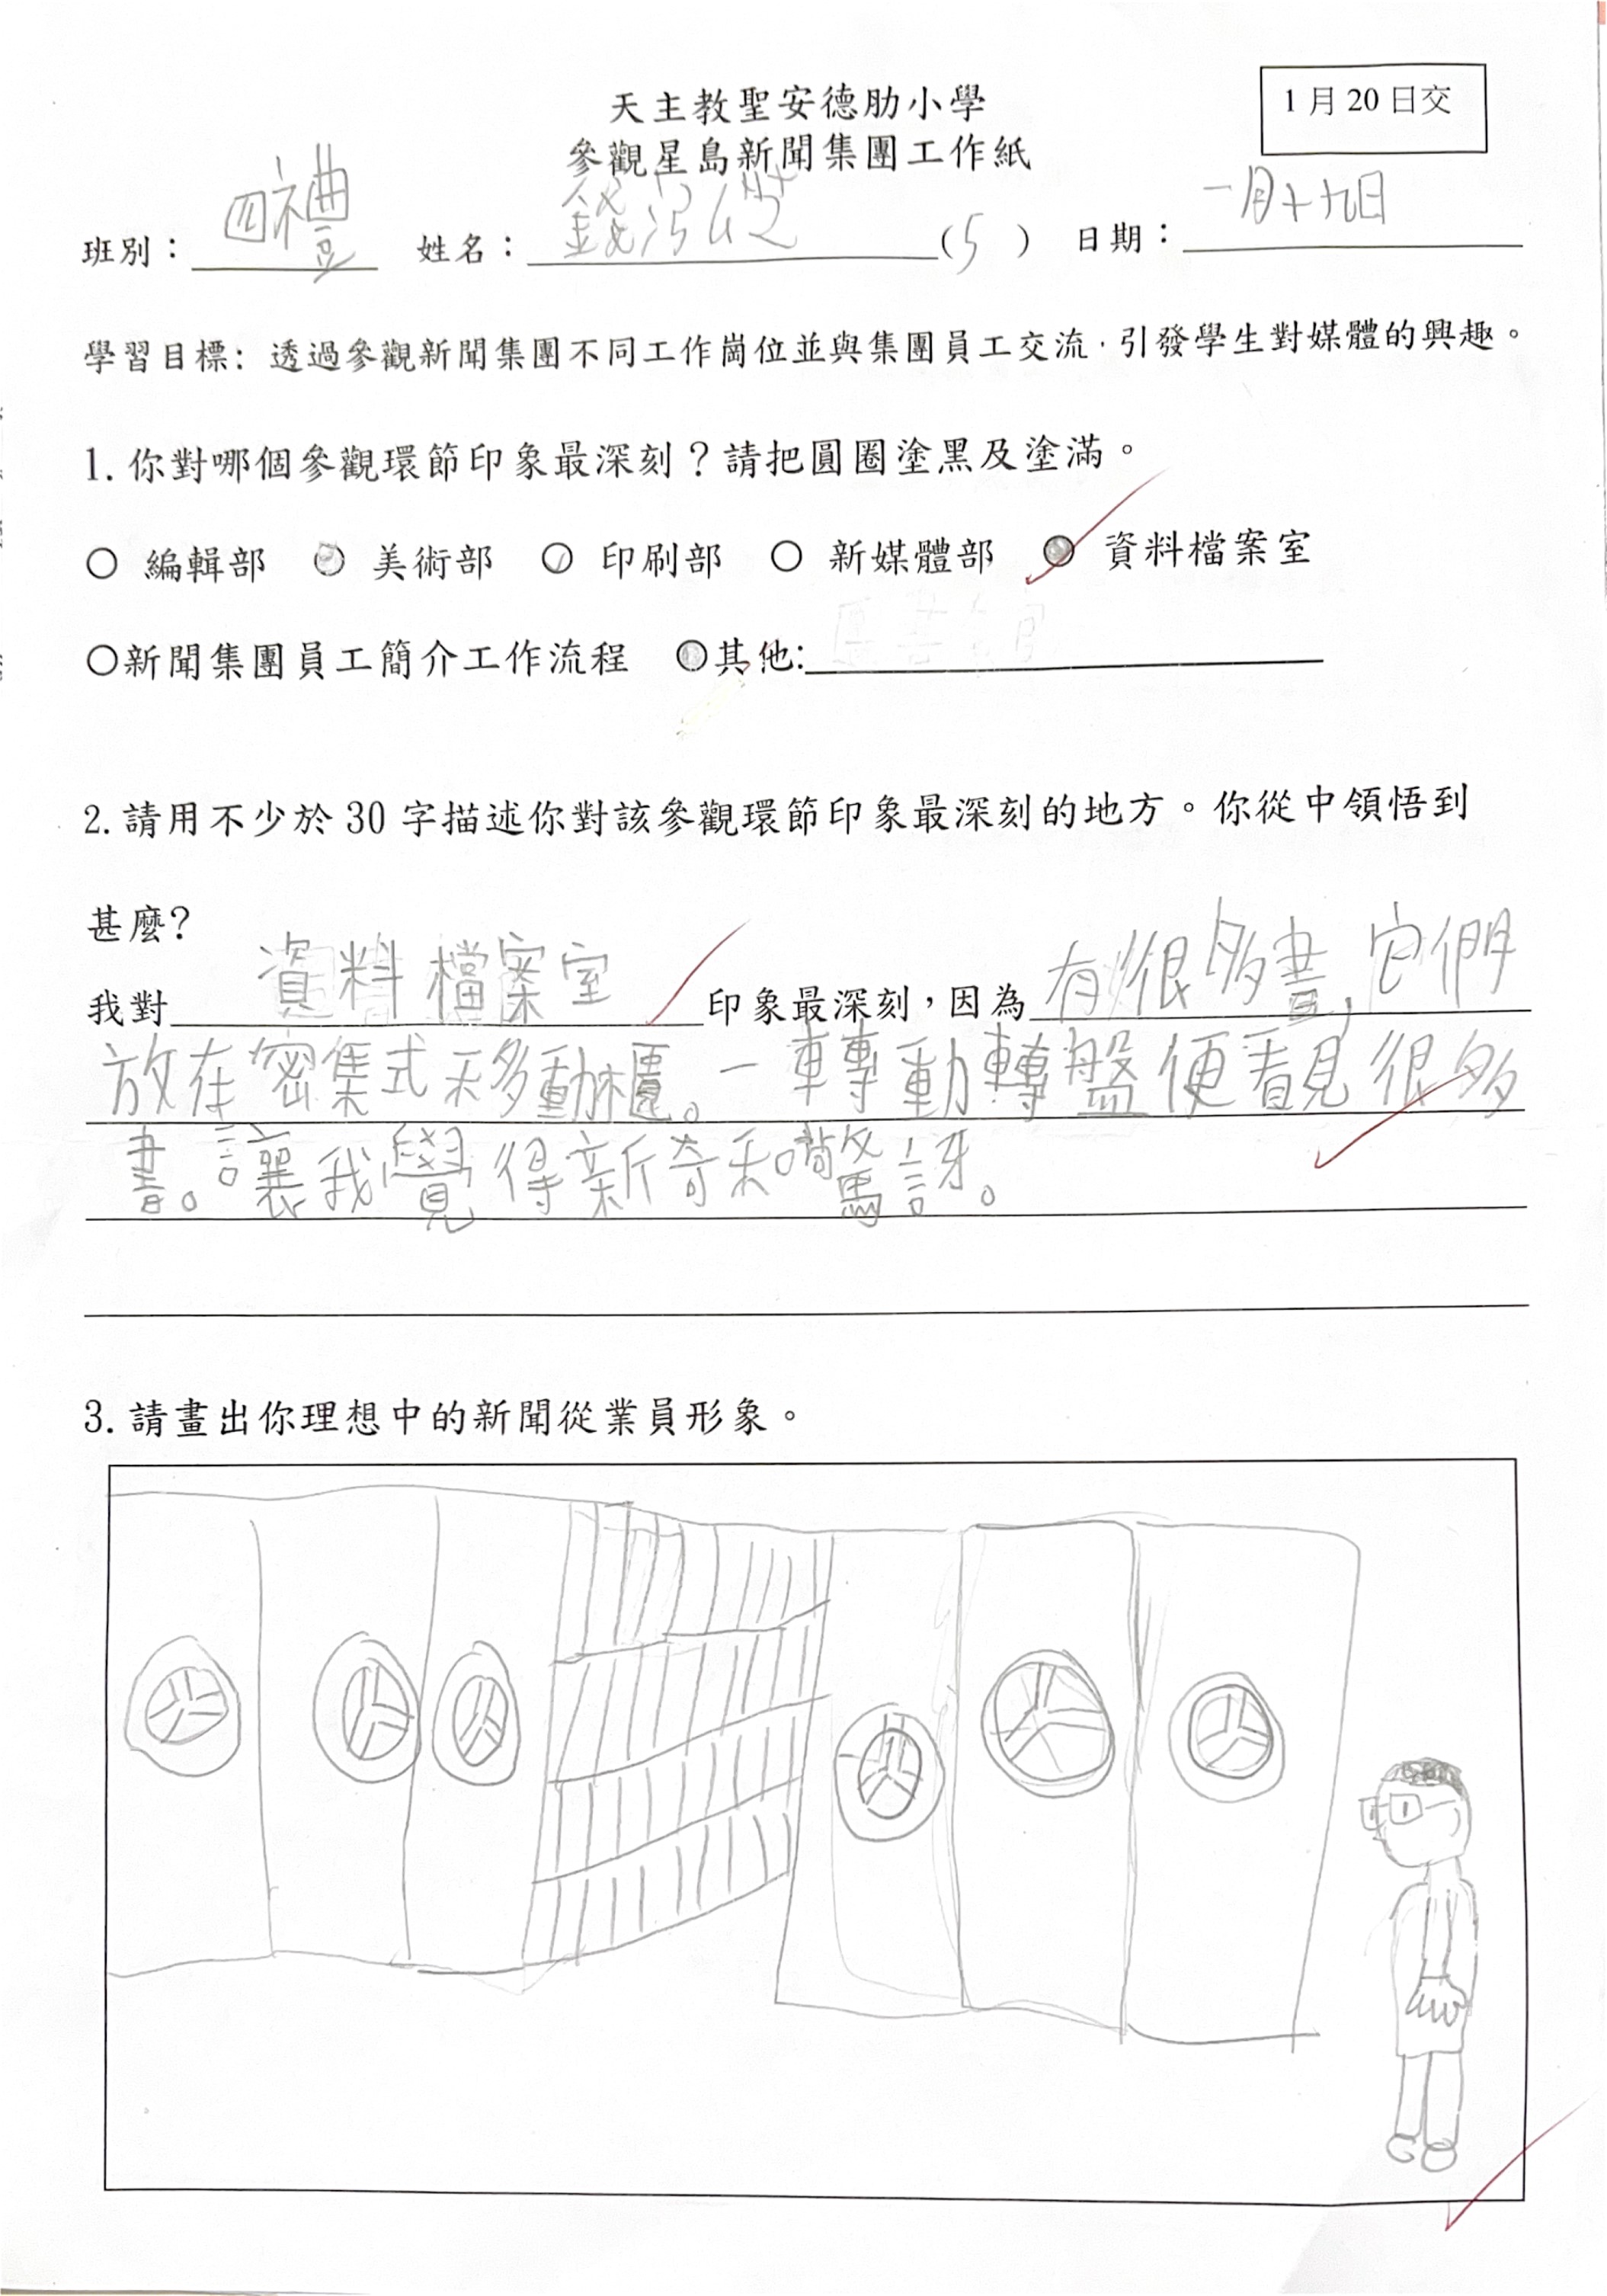 1 月 20 日交
天主教聖安德肋小學
參觀星島新聞集團工作紙
班別：四禮 姓名：錢 (5) 日期：一月十九日
學習目標：透過參觀新聞集團不同工作崗位並與集團員工交流，引發學生對媒體的興趣。
1. 你對哪個參觀環節印象最深刻？請把圓圈塗黑及塗滿。
○ 編輯部 ○ 美術部 ○ 印刷部 ○ 新媒體部 ● 資料檔案室
○新聞集團員工簡介工作流程 ○其他:
2. 請用不少於 30 字描述你對該參觀環節印象最深刻的地方。你從中領悟到
甚麼?
我對資料檔案室印象最深刻，因為有很多書，它們
放在密集式移動櫃。一轉動轉盤便看見很多
書。讓我覺得新奇和驚訝。
3. 請畫出你理想中的新聞從業員形象。